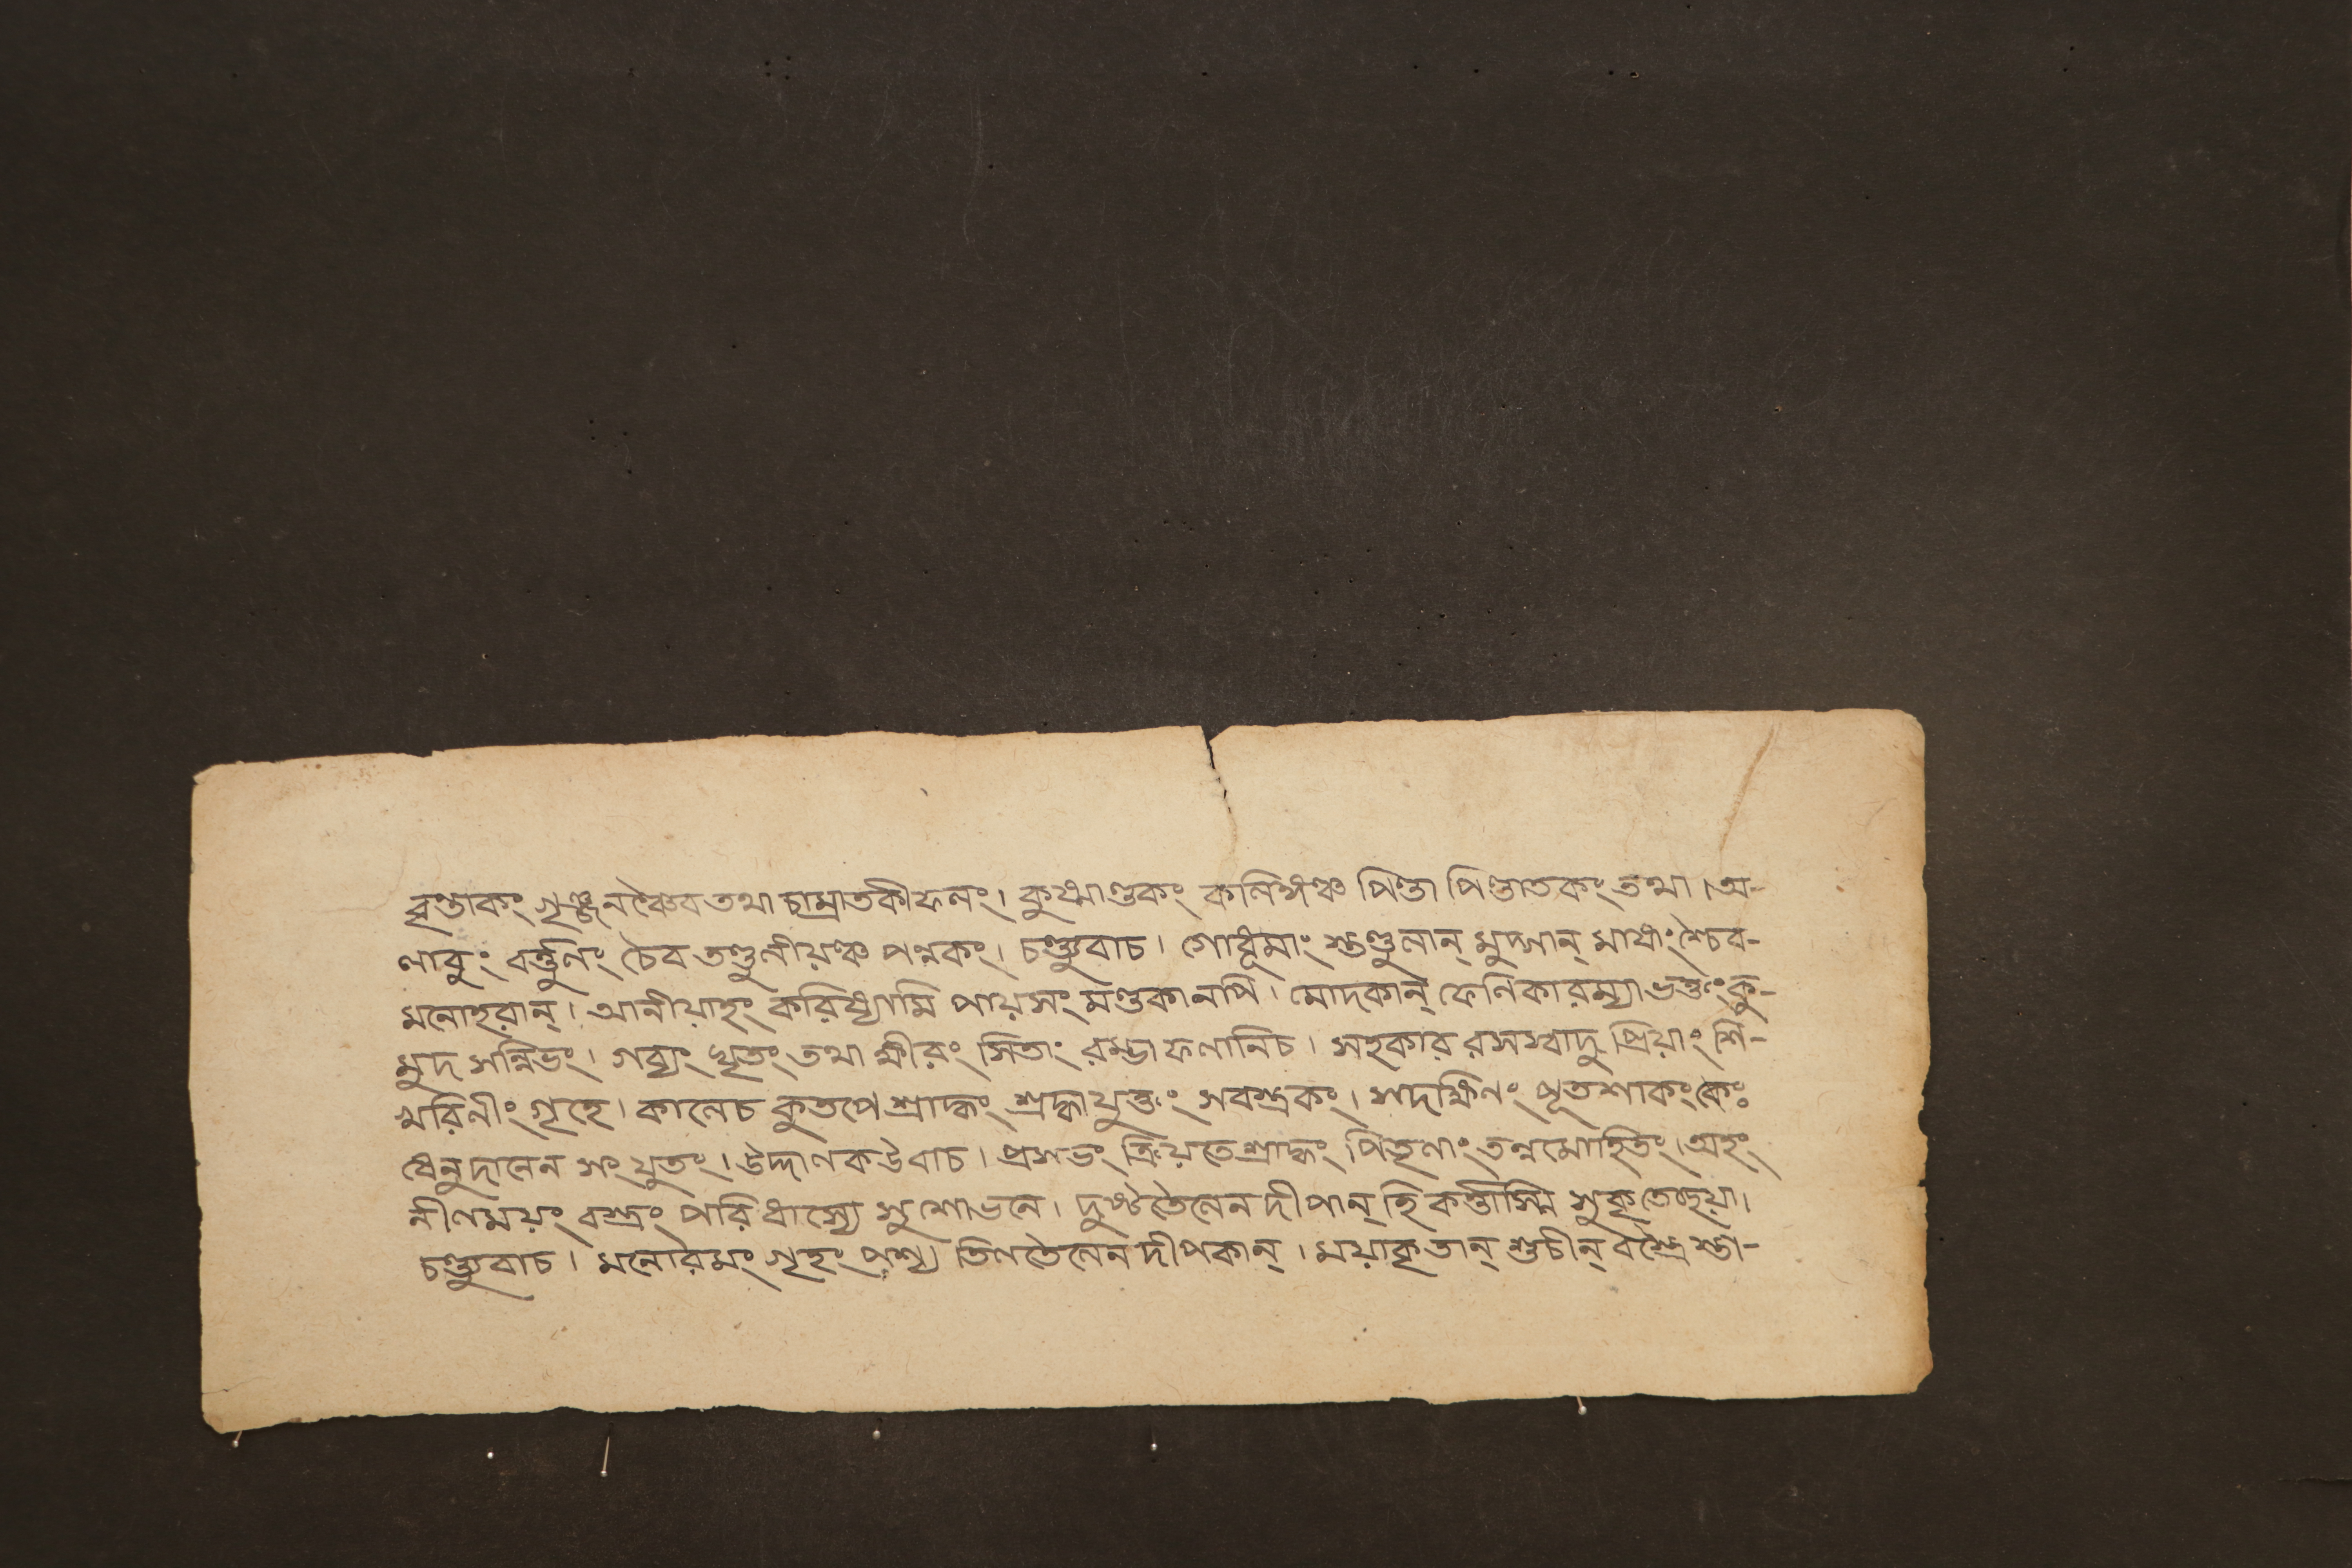 বৃন্তাকং গৃঞ্জনঞ্চৈব তথা চাম্রাতকীফলং। কুষ্মাণ্ডকং কলিঙ্গঞ্চ পিণ্ডা পিণ্ডাতকং তথা। অ-
লাবুং বর্ত্তুলিং চৈব তণ্ডুলীয়ঞ্চ পন্নকং। চণ্ড্যুবাচ। গোধূমাং স্তণ্ডুলান্ মুদ্গান্ মাষাং শ্চৈব-
মনোহরান্। আনীয়াহং করিষ্যামি পায়সং মণ্ডকানপি। মোদকান্ ফেণিকারম্যা ভক্তং কু-
মুদ সন্নিভং। গব্যং ঘৃতং তথা ক্ষীরং সিতাং রম্ভা ফলানিচ। সহকার রসস্বাদু প্রিয়াং শি-
খরিনীং গৃহে। কালেচ কুতপে শ্রাদ্ধং শ্রদ্ধাযুক্তং সবস্ত্রকং। সদক্ষিণং ধৃতশাকং
ধেনুদানেন সংযুতং। উদ্দালক উবাচ। প্রসভং ক্রিয়তে শ্রাদ্ধং পিতৃণাং তন্নমোহিতং। অহং
নীলময়ং বস্ত্রং পরিধাস্যে সুশোভনে। দুষ্টতৈলেন দীপান্ হি কর্ত্তাস্মি সুকৃতে
চণ্ড্যুবাচ। মনোরমং গৃহং পশ্য তিলতৈলেন দীপকান্। ময়াকৃতান্ শুচীন্ বস্ত্রৈ স্তা-